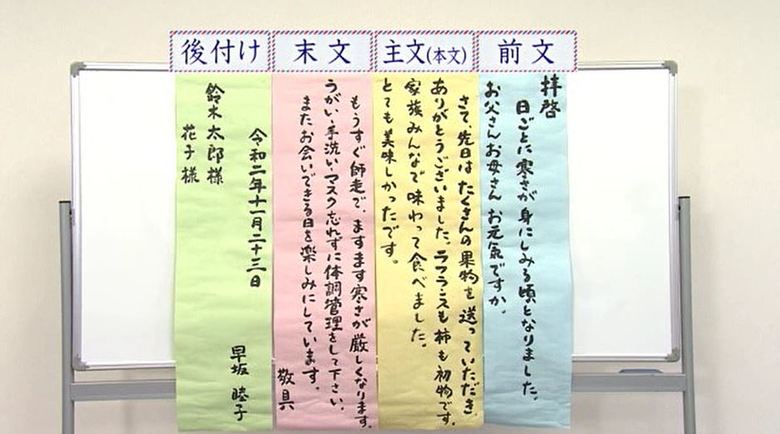 前文
拝啓
日ごとに寒さが身にしみる頃となりました。
お父さんお母さんお元気ですか。
主文(本文)
さて、先日はたくさんの果物を送っていただき
ありがとうございました。ラフランスも柿も初物です。
家族みんなで味わって食べました。
とても美味しかったです。
末文
もうすぐ師走で、ますます寒さが厳しくなります。
うがい、手洗い、マスク忘れずに体調管理をして下さい。
またお会いできる日を楽しみにしています。
敬具
後付け
令和二年十一月二十三日
早坂 睦子
鈴木太郎様
花子様